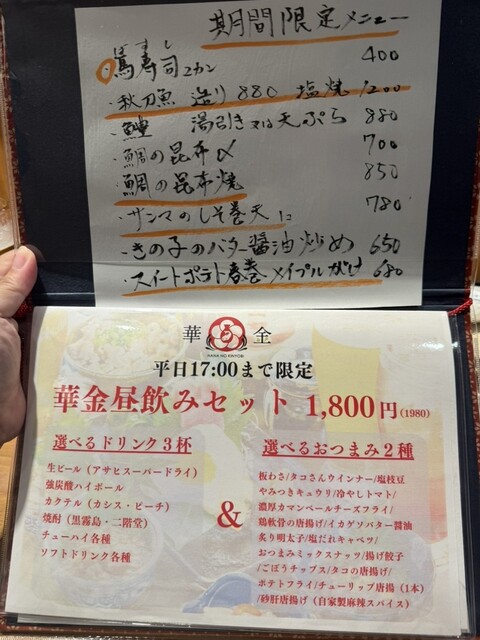 期間限定メニュー
ばすし
・馬寿司2カン 400
・秋刀魚 造り 880 塩焼 1200
・鱧 湯引き又は天ぷら 880
・鯛の昆布〆 700
・鯛の昆布焼 850
・サンマのしそ巻天 780
・きの子のバター醤油炒め 650
・スイートポテト春巻メイプルがけ 680
華 金
HANA NO KINYOBI
平日17:00まで限定
華金昼飲みセット 1,800円(1980)
選べるドリンク3杯
生ビール（アサヒスーパードライ）
強炭酸ハイボール
カクテル（カシス・ピーチ）
焼酎（黒霧島・二階堂）
チューハイ各種
ソフトドリンク各種
&
選べるおつまみ2種
板わさ/タコさんウインナー/塩枝豆
やみつきキュウリ/冷やしトマト/
濃厚カマンベールチーズフライ/
鶏軟骨の唐揚げ/イカゲソバター醤油
炙り明太子/塩だれキャベツ/
おつまみミックスナッツ/揚げ餃子
/ごぼうチップス/タコの唐揚げ/
ポテトフライ/チューリップ唐揚（1本）
/砂肝唐揚げ（自家製麻辣スパイス）